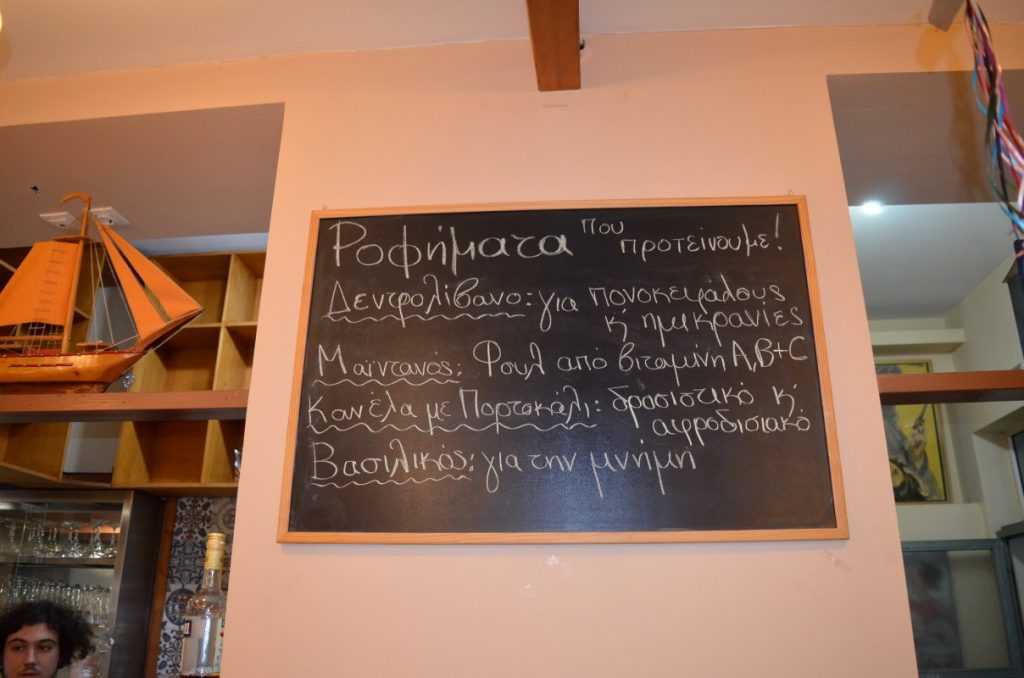 Ροφήματα που προτείνουμε!
Δεντρολίβανο: για πονοκεφάλους
κ' ημικρανίες
Μαϊντανός: Φουλ από βιταμίνη Α,Β+C
Κανέλα με Πορτοκάλι: δρασιστικό κ'
αφροδισιακό
Βασιλικός: για την μνήμη